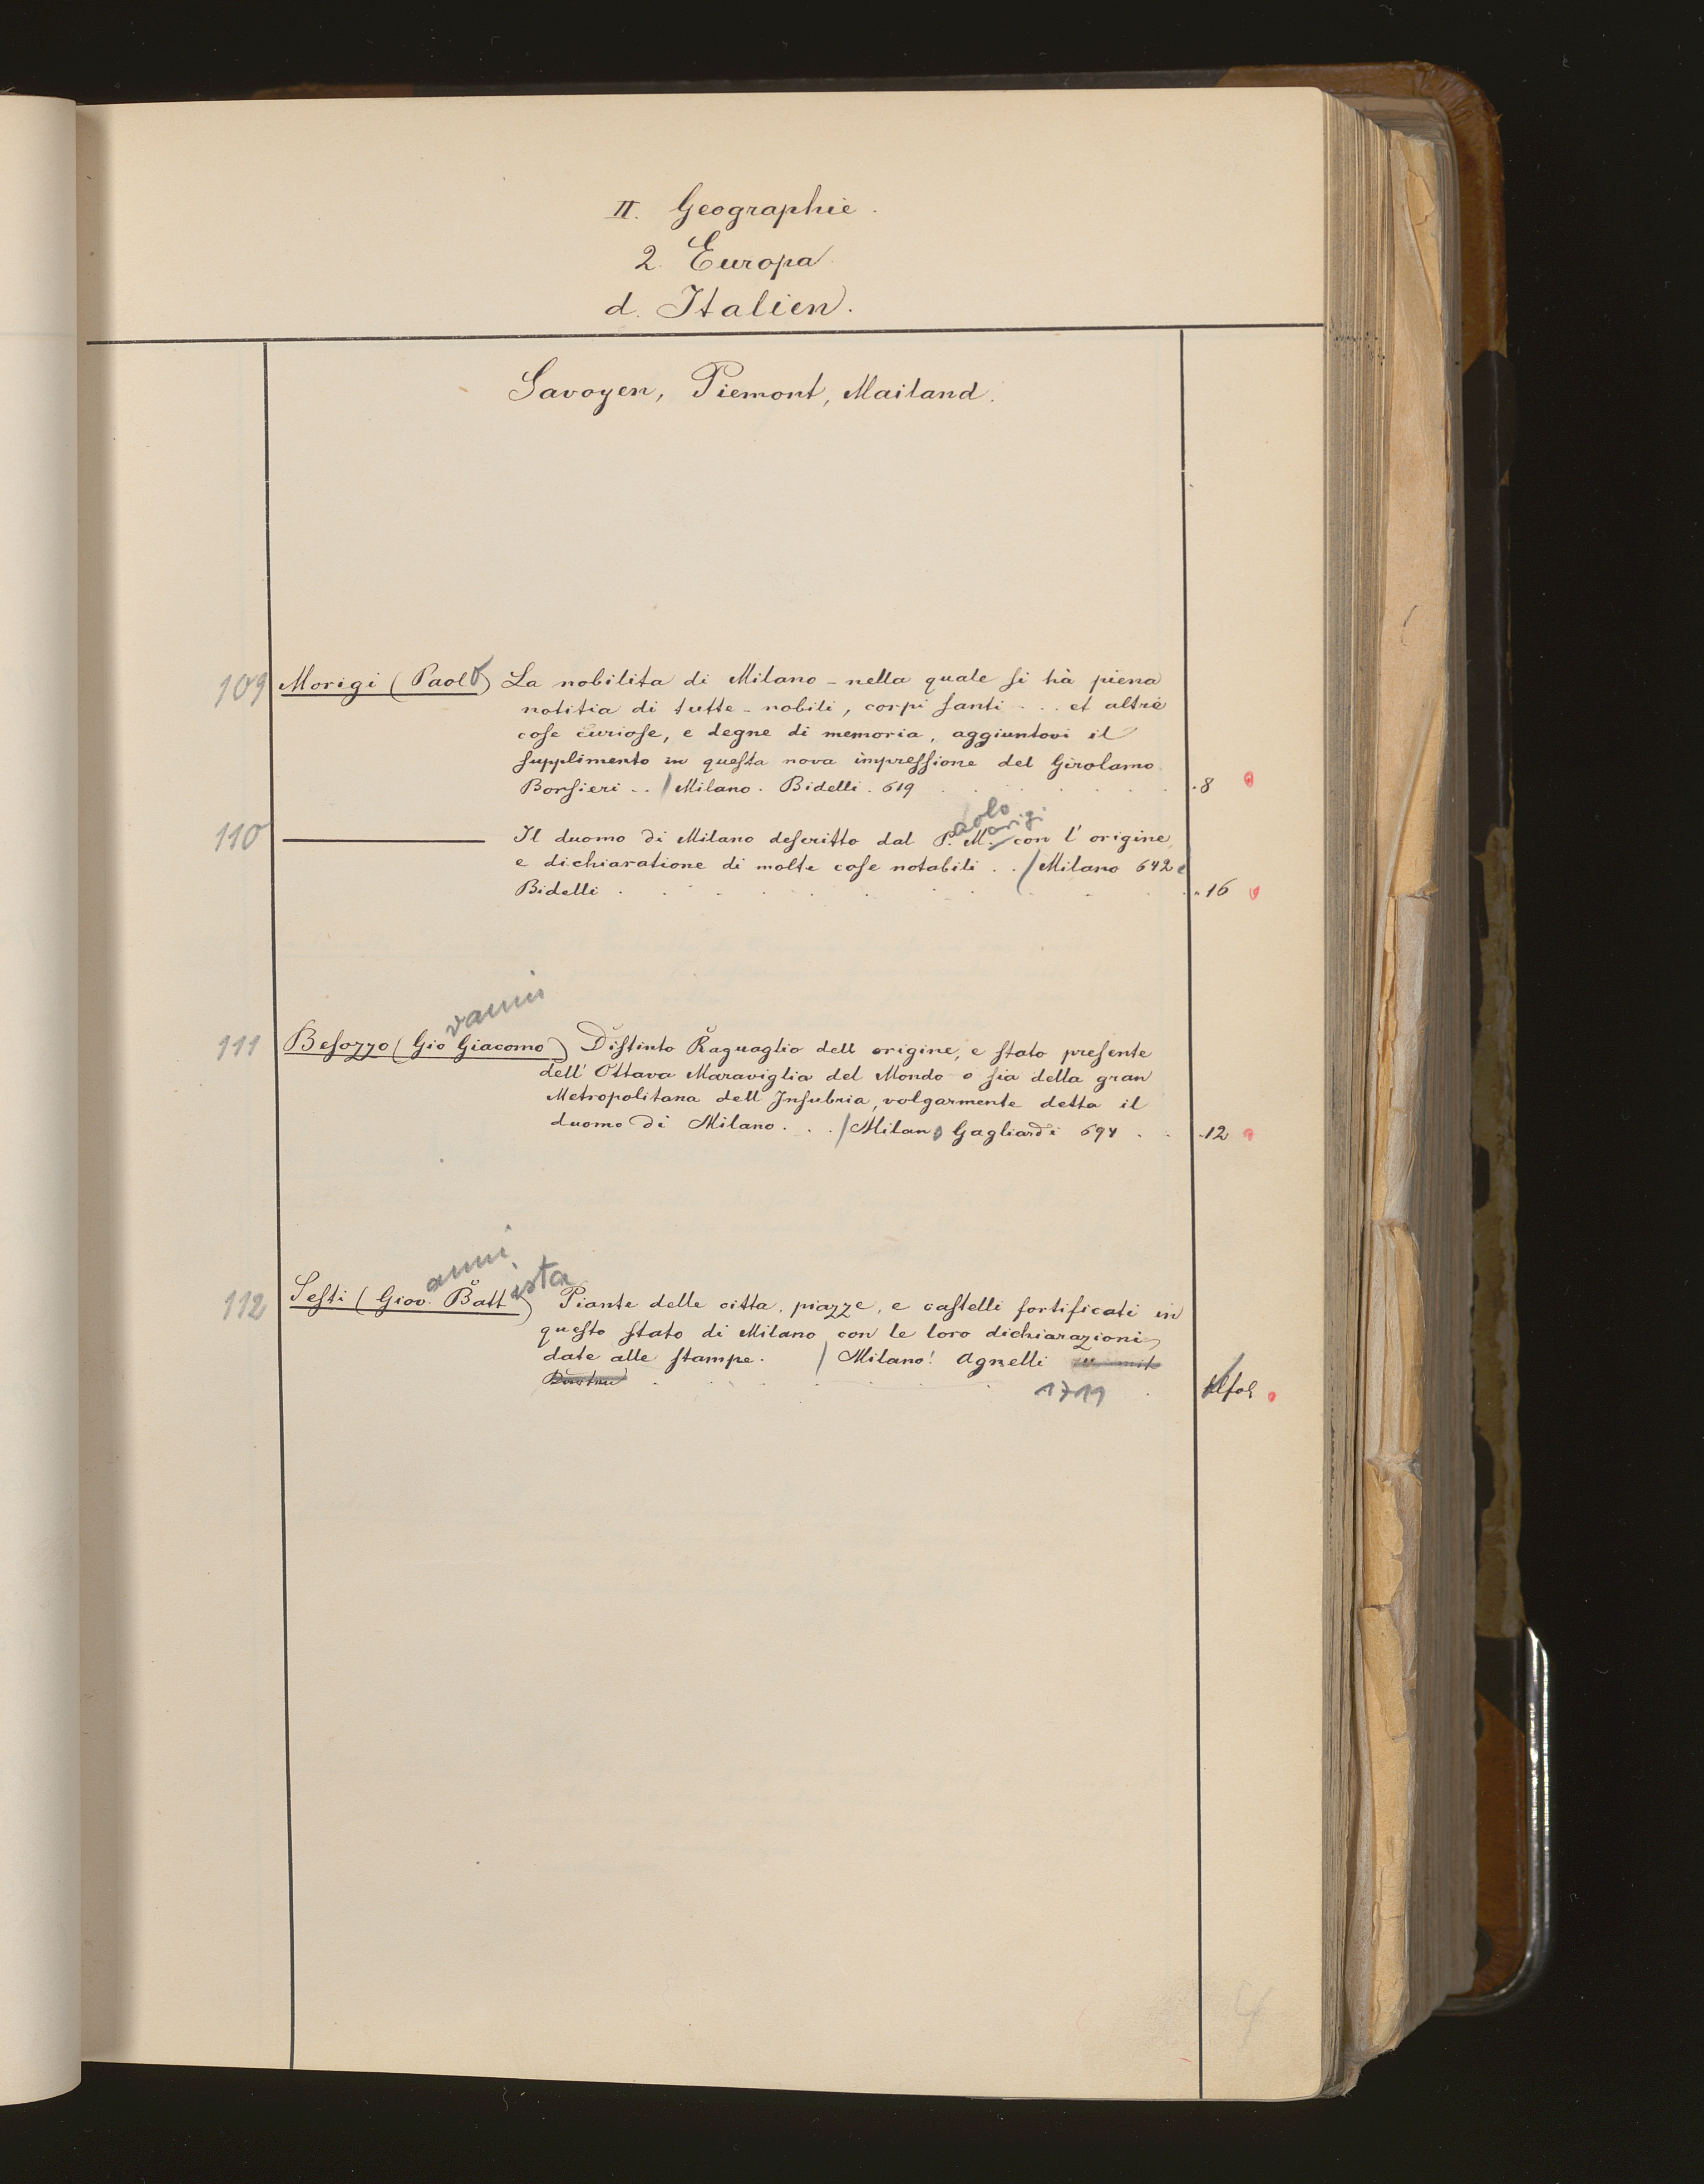 II. Geographie.
2. Europa.
d. Italien.
Savoyen, Piemont, Mailand.
109 Morigi (Paolo) La nobilita di Milano - nella quale si hà piena
notitia di tutte - nobili, corpi santi . . . et altre
cose curiose, e degne di memoria, aggiuntovi il
supplimento in questa nova impressione del Girolamo
Borsieri .. / Milano. Bidelli. 619 . 8
aolo origi
110 ——— Il duomo di Milano descritto dal P. M. con l'origine,
e dichiaratione di molte cose notabili . . / Milano 642
Bidelli . 16
vanni
111 Besozzo (Gio Giacomo) Distinto Raguaglio dell origine, e stato presente
dell' Ottava Maraviglia del Mondo o sia della gran
Metropolitana dell Insubria, volgarmente detta il
duomo di Milano . . . / Milano Gagliardi 694 . . 12
anni ista
112 Sesti (Giov. Batt) Piante delle citta, piazze, e castelli fortificati in
questo stato di Milano con le loro dichiarazioni
date alle stampe. / Milano! Agnelli
1719 fol
4